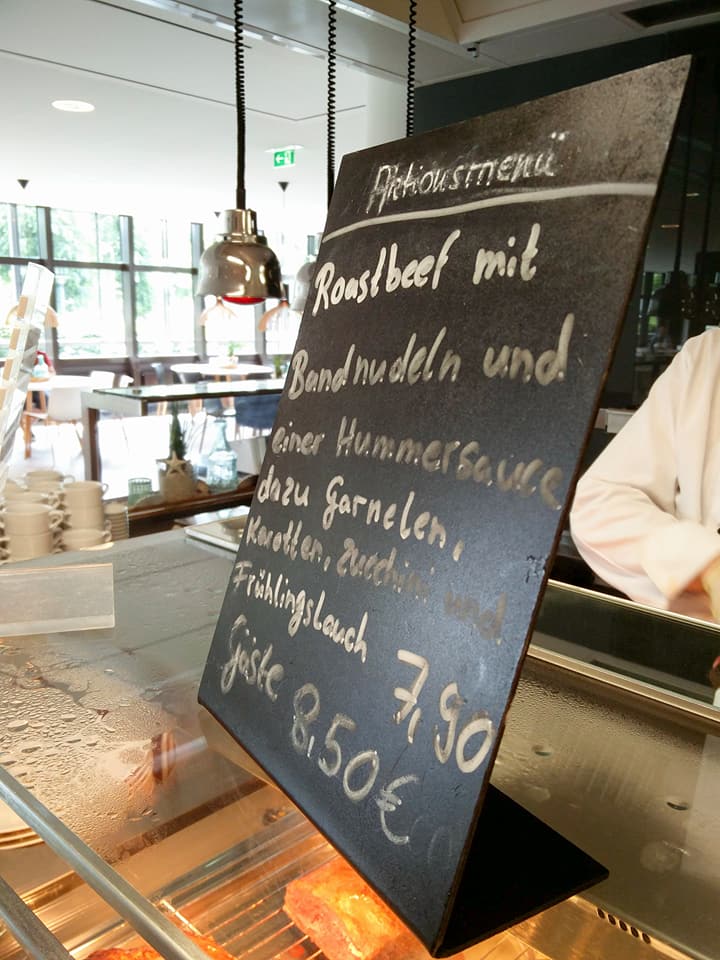 Aktionsmenü
Roastbeef mit
Bandnudeln und
einer Hummersauce
dazu Garnelen,
Karotten, Zucchini und
Frühlingslauch 7,90
Gäste 8,50€